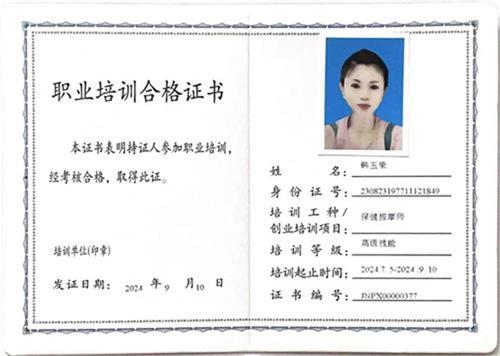 职业培训合格证书
本证书表明持证人参加职业培训，
经考核合格，取得此证。
培训单位(印章)
发证日期： 2024 年 9 月 10 日
姓 名： 韩玉荣
身 份 证 号： 230823197711121849
培 训 工 种/
创业培训项目： 保健按摩师
培 训 等 级： 高级技能
培训起止时间： 2024.7.5-2024.9.10
证 书 编 号： JNPX00000377